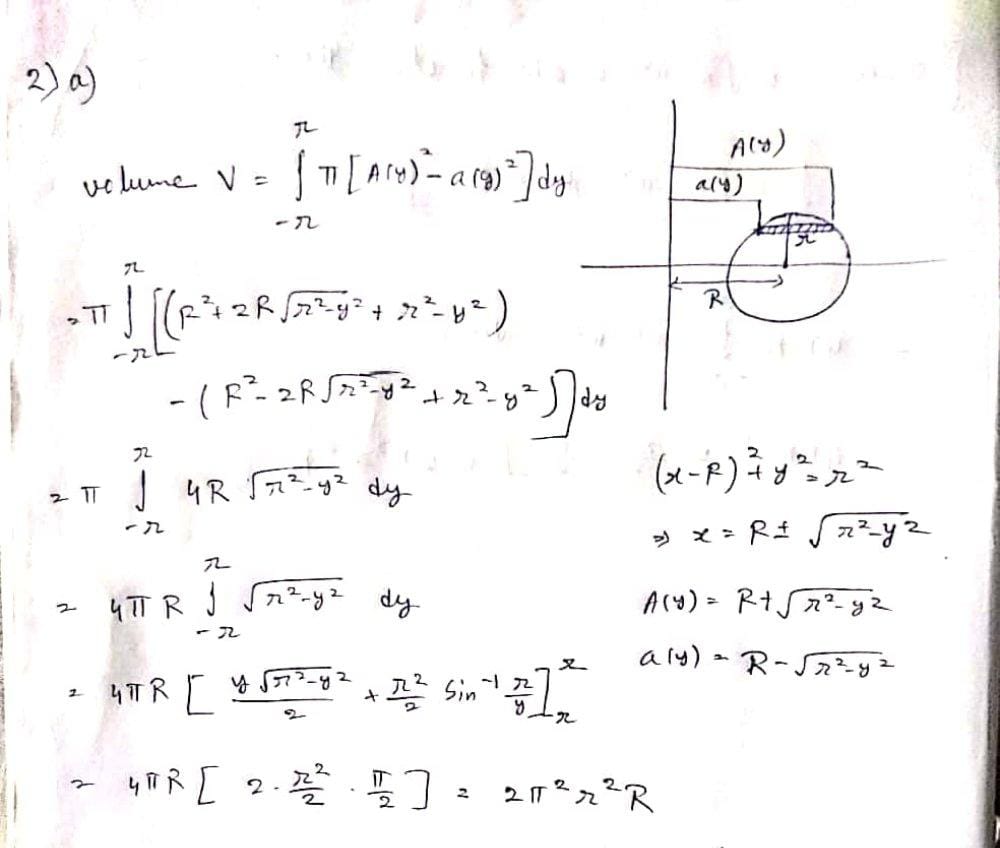 2) a)
volume V = ∫_{-r}^{r} π [A(y)² - a(y)²] dy
= π ∫_{-r}^{r} [(R² + 2R√(r²-y²) + r² - y²)
- (R² - 2R√(r²-y²) + r² - y²)] dy
= π ∫_{-r}^{r} 4R √(r²-y²) dy
= 4πR ∫_{-r}^{r} √(r²-y²) dy
= 4πR [ y√(r²-y²)/2 + r²/2 sin⁻¹ r/y ]_{r}^{r}
= 4πR [ 2 · r²/2 · π/2 ] = 2π²r²R
A(y)
a(y)
r
R
(x-R)² + y² = r²
⇒ x = R ± √(r²-y²)
A(y) = R + √(r²-y²)
a(y) = R - √(r²-y²)